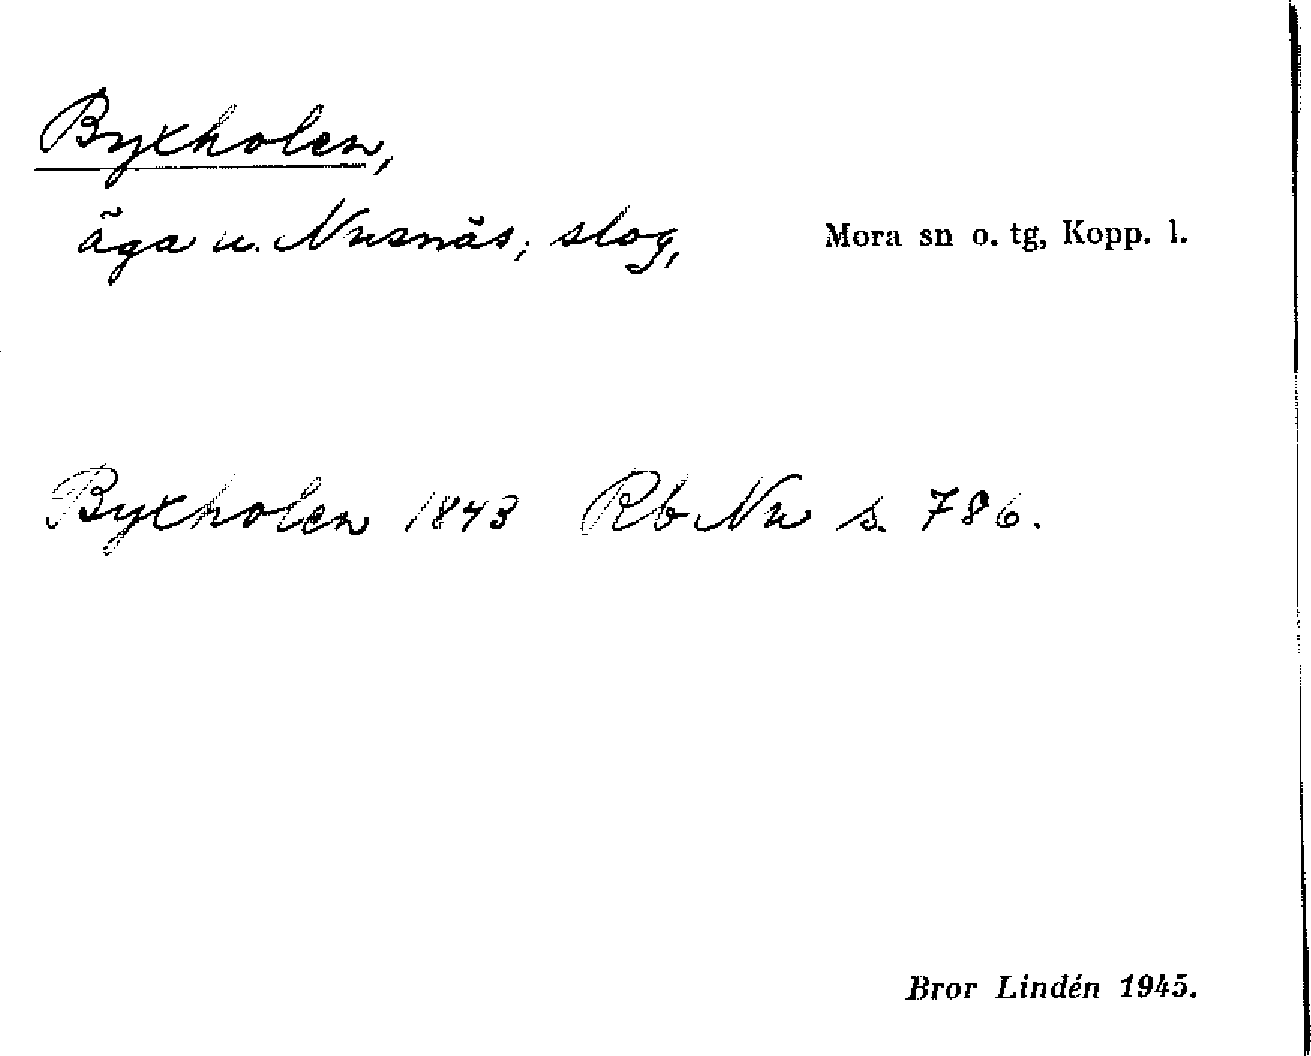 Byxholen,
äga u. Nusnäs; slog, Mora sn o. tg, Kopp. l.
Byxholen 1843 Rb Nu s. 786.
Bror Lindén 1945.